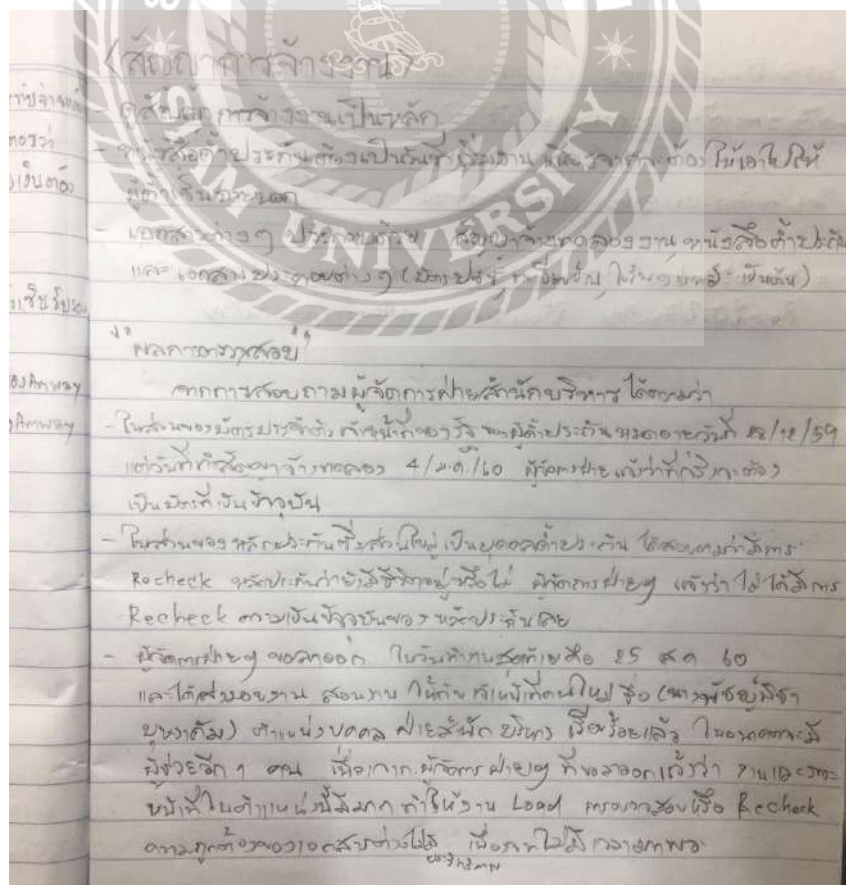 (สัญญาการจ้างงาน)
ดูสัญญาการจ้างงานเป็นหลัก
- หนังสือค้ำประกันต้องเป็นวันที่เริ่มงาน ต้อง ให้เอาไปให้
- เอกสารต่างๆ ประกอบด้วย สัญญาจ้างทดลองงาน หนังสือค้ำประกัน
และเอกสารประกอบต่างๆ (บัตร ปชช ทะเบียนบ้าน เป็นต้น)
"ผลการตรวจสอบ"
จากการสอบถามผู้จัดการฝ่ายสำนักบริหาร ได้ความว่า
- ในส่วนของบัตรประจำตัวเจ้าหน้าที่ของรัฐ ของผู้ค้ำประกัน หมดอายุวันที่ 28/12/59
แต่วันที่ทำสัญญาจ้างทดลอง 4/ม.ค./60 ผู้จัดการฝ่ายแจ้งว่าที่จริงจะต้อง
เป็นบัตรที่เป็นปัจจุบัน
- ในส่วนของหลักประกันซึ่งส่วนใหญ่เป็นบุคคลค้ำประกัน ได้สอบถามว่ามีการ
Recheck หลักประกันว่ายังมีชีวิตอยู่หรือไม่ ผู้จัดการฝ่ายๆ แจ้งว่าไม่ได้มีการ
Recheck ความเป็นปัจจุบันของหลักประกันเลย
- ผู้จัดการฝ่ายๆ ขอลาออก ในวันทำงานสุดท้ายคือ 25 ส.ค 60
และได้ส่งมอบงาน สอนงาน ให้กับเจ้าหน้าที่คนใหม่ ชื่อ
ตำแหน่งบุคคล ฝ่ายสำนักบริหาร เรียบร้อยแล้ว ในอนาคตจะมี
ผู้ช่วยอีก 1 คน เนื่องจากผู้จัดการฝ่ายๆ ที่ขอลาออกแจ้งว่า งานและภาระ
หน้าที่ในตำแหน่งนี้มีมาก ทำให้งาน Load การตรวจสอบหรือ Recheck
ความถูกต้องของเอกสารต่างๆ เนื่องจากไม่มีเวลามากพอ
ประสิทธิภาพ
ของAmway
Amway
SIAM UNIVERSITY